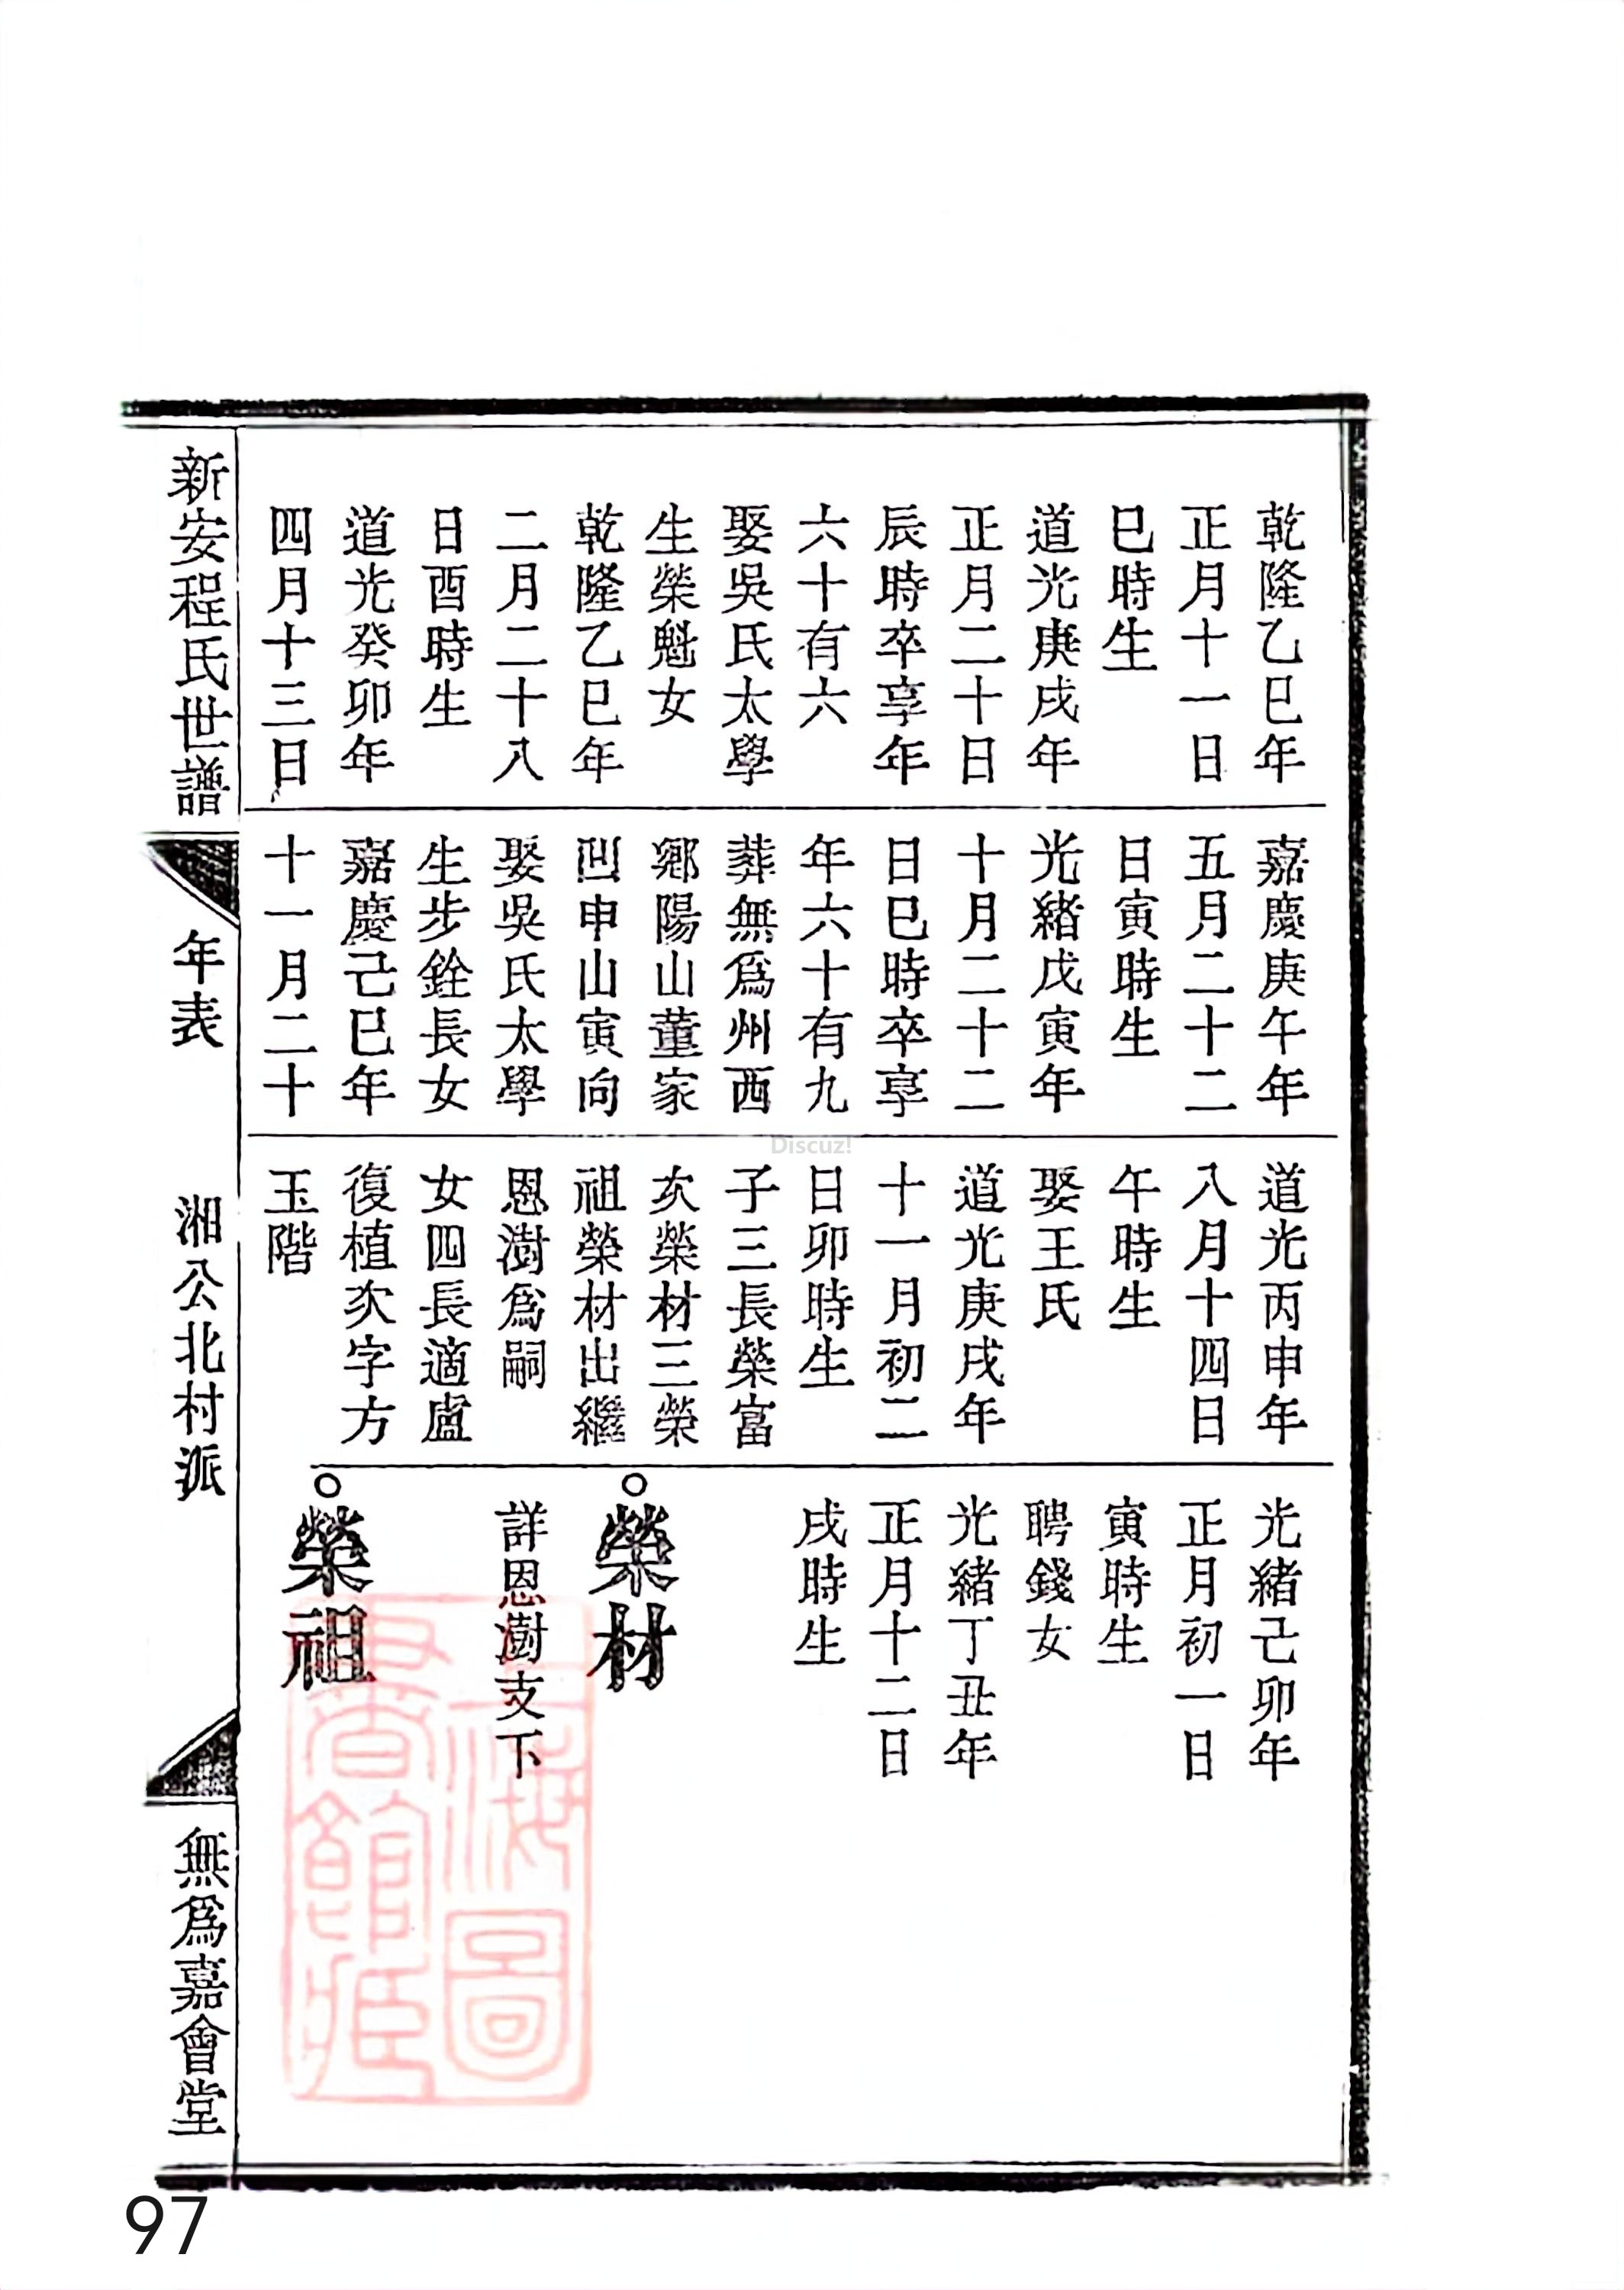 乾隆乙巳年
正月十一日
巳時生
道光庚戌年
正月二十日
辰時卒享年
六十有六
娶吳氏太學
生榮魁女
乾隆乙巳年
二月二十八
日酉時生
道光癸卯年
四月十三日
嘉慶庚午年
五月二十二
日寅時生
光緒戊寅年
十月二十二
日巳時卒享
年六十有九
葬無爲州西
鄉陽山董家
凹申山寅向
娶吳氏太學
生步銓長女
嘉慶己巳年
十一月二十
道光丙申年
八月十四日
午時生
娶王氏
道光庚戌年
十一月初二
日卯時生
子三長榮富
次榮材三榮
祖榮材出繼
恩澍爲嗣
女四長適盧
復植次字方
玉階
光緒己卯年
正月初一日
寅時生
聘錢女
光緒丁丑年
正月十二日
戌時生
○榮材
詳恩澍支下
○榮祖
新安程氏世譜
年表
湘公北村派
無爲嘉會堂
上海圖
書館藏
Discuz!
97